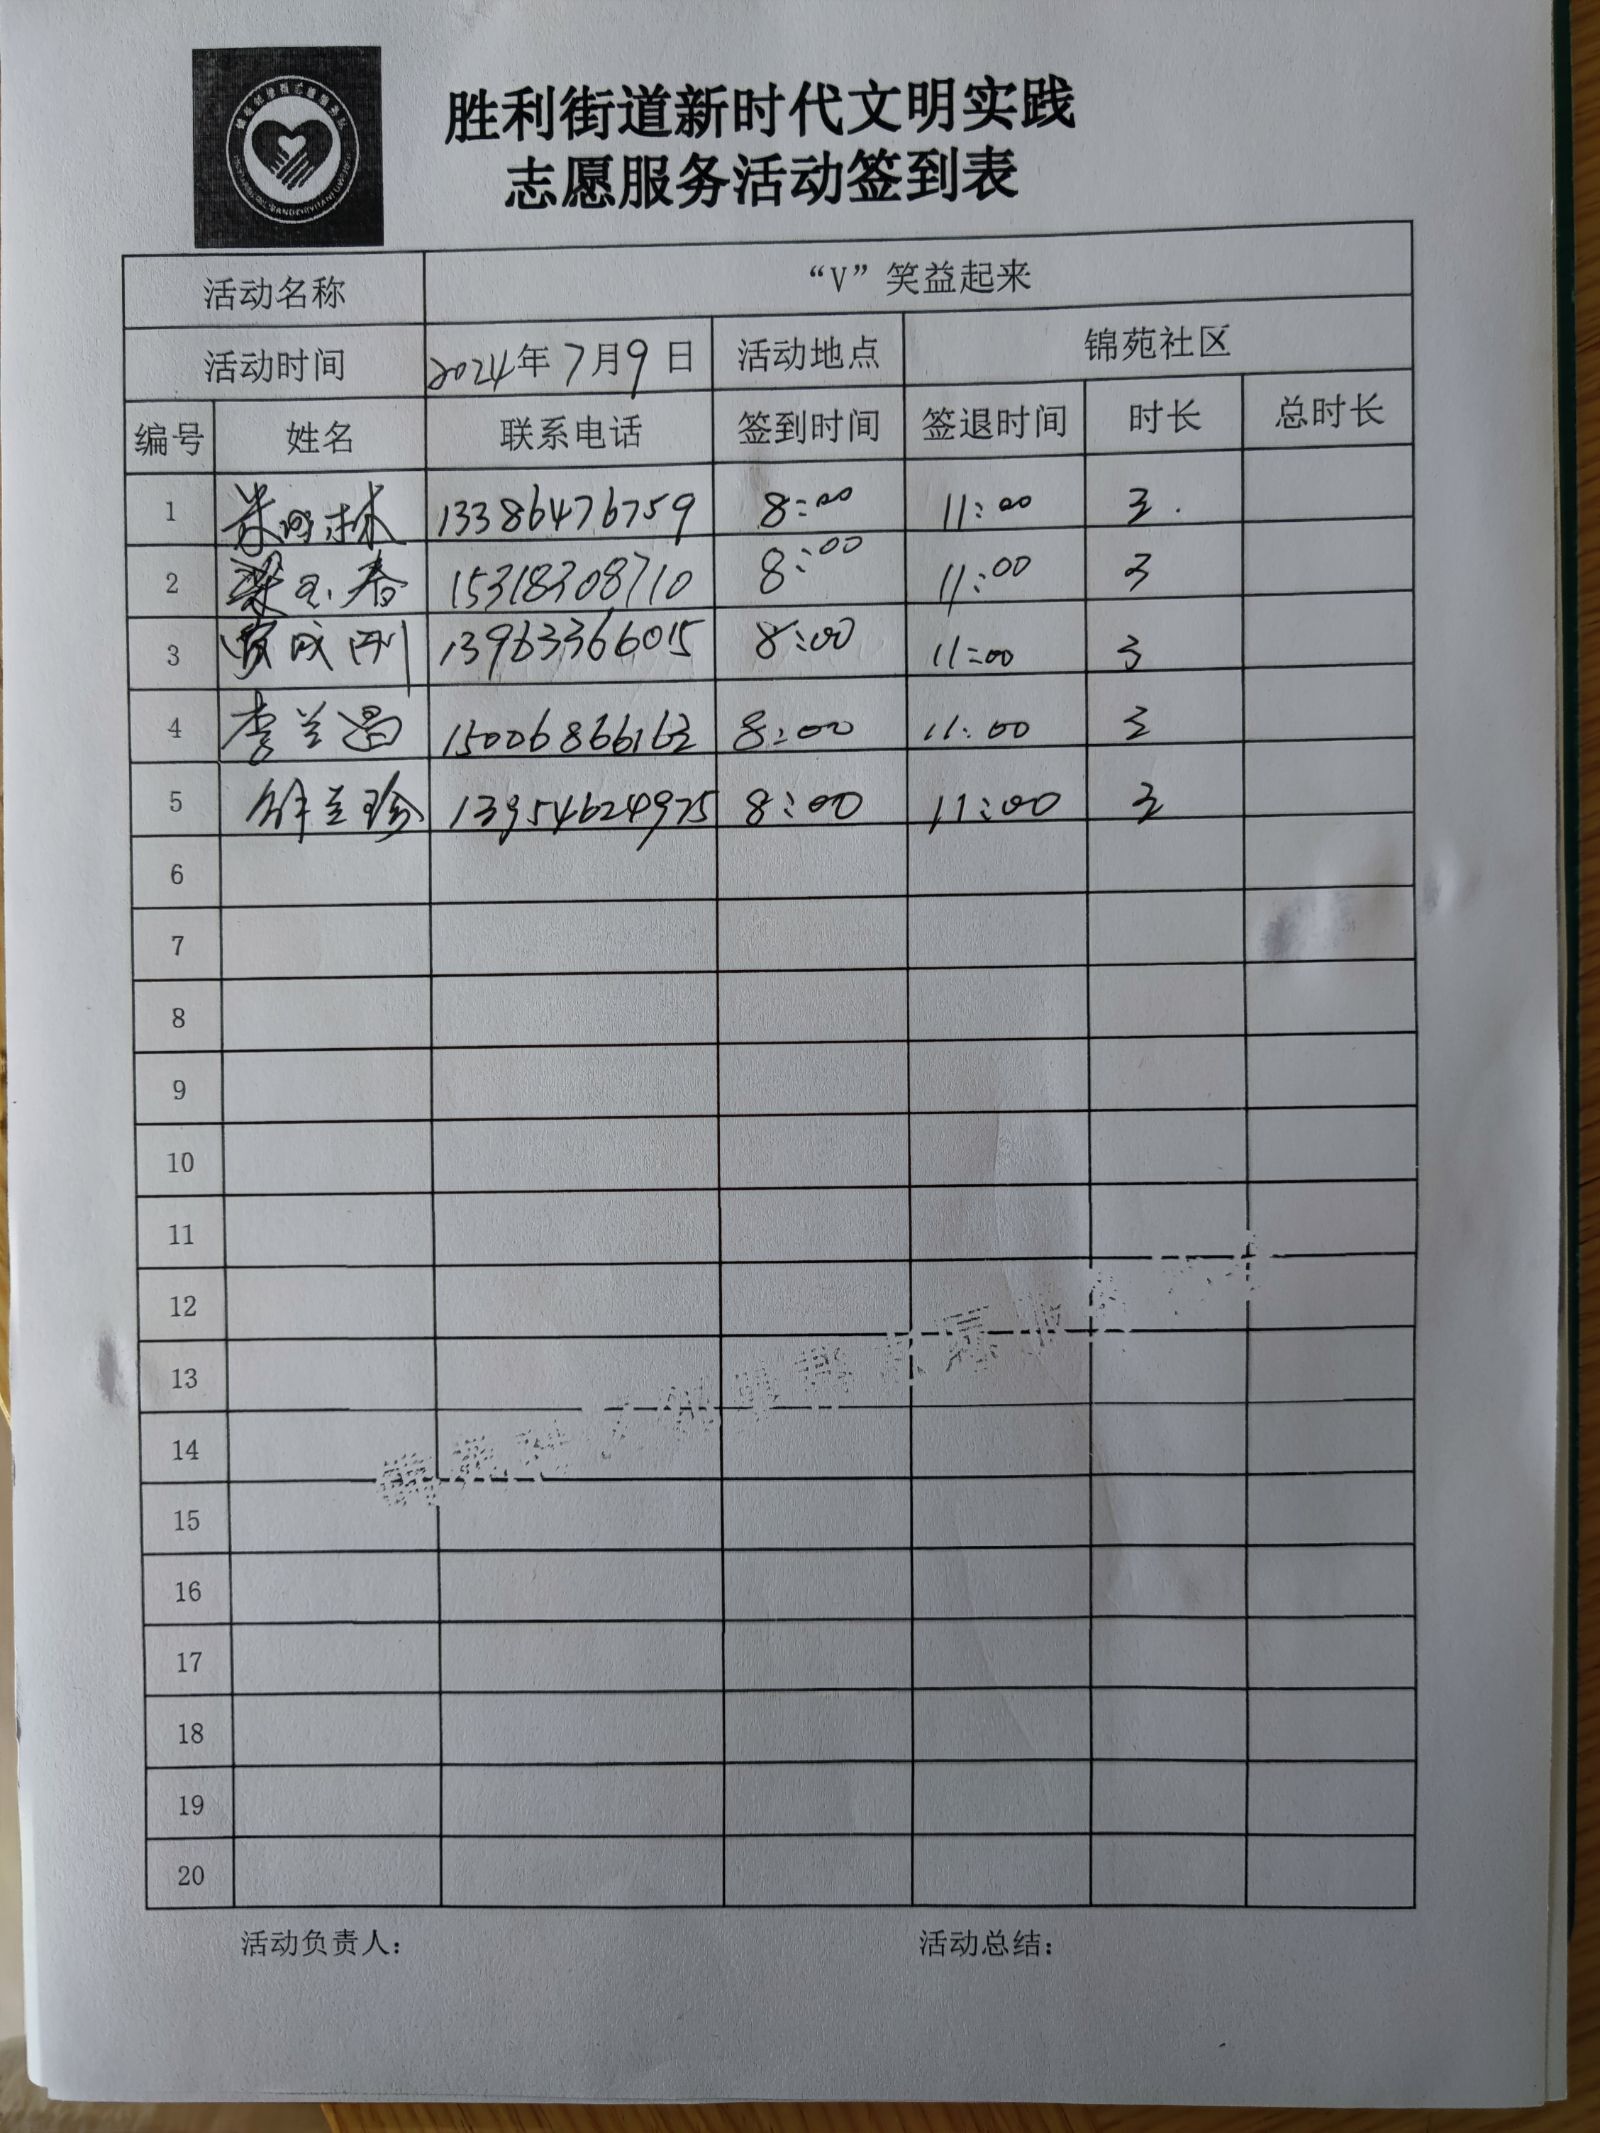 胜利街道新时代文明实践
志愿服务活动签到表
活动名称 “V”笑益起来
活动时间 2024年7月9日 活动地点 锦苑社区
编号 姓名 联系电话 签到时间 签退时间 时长 总时长
1 林 13386476759 8:00 11:00 3
2 梁玉春 15318308710 8:00 11:00 3
3 贾成刚 13963366015 8:00 11:00 3
4 李兰昌 15006866163 8:00 11:00 3
5 兰珍 13954624975 8:00 11:00 3
6
7
8
9
10
11
12
13
14
15
16
17
18
19
20
活动负责人： 活动总结：